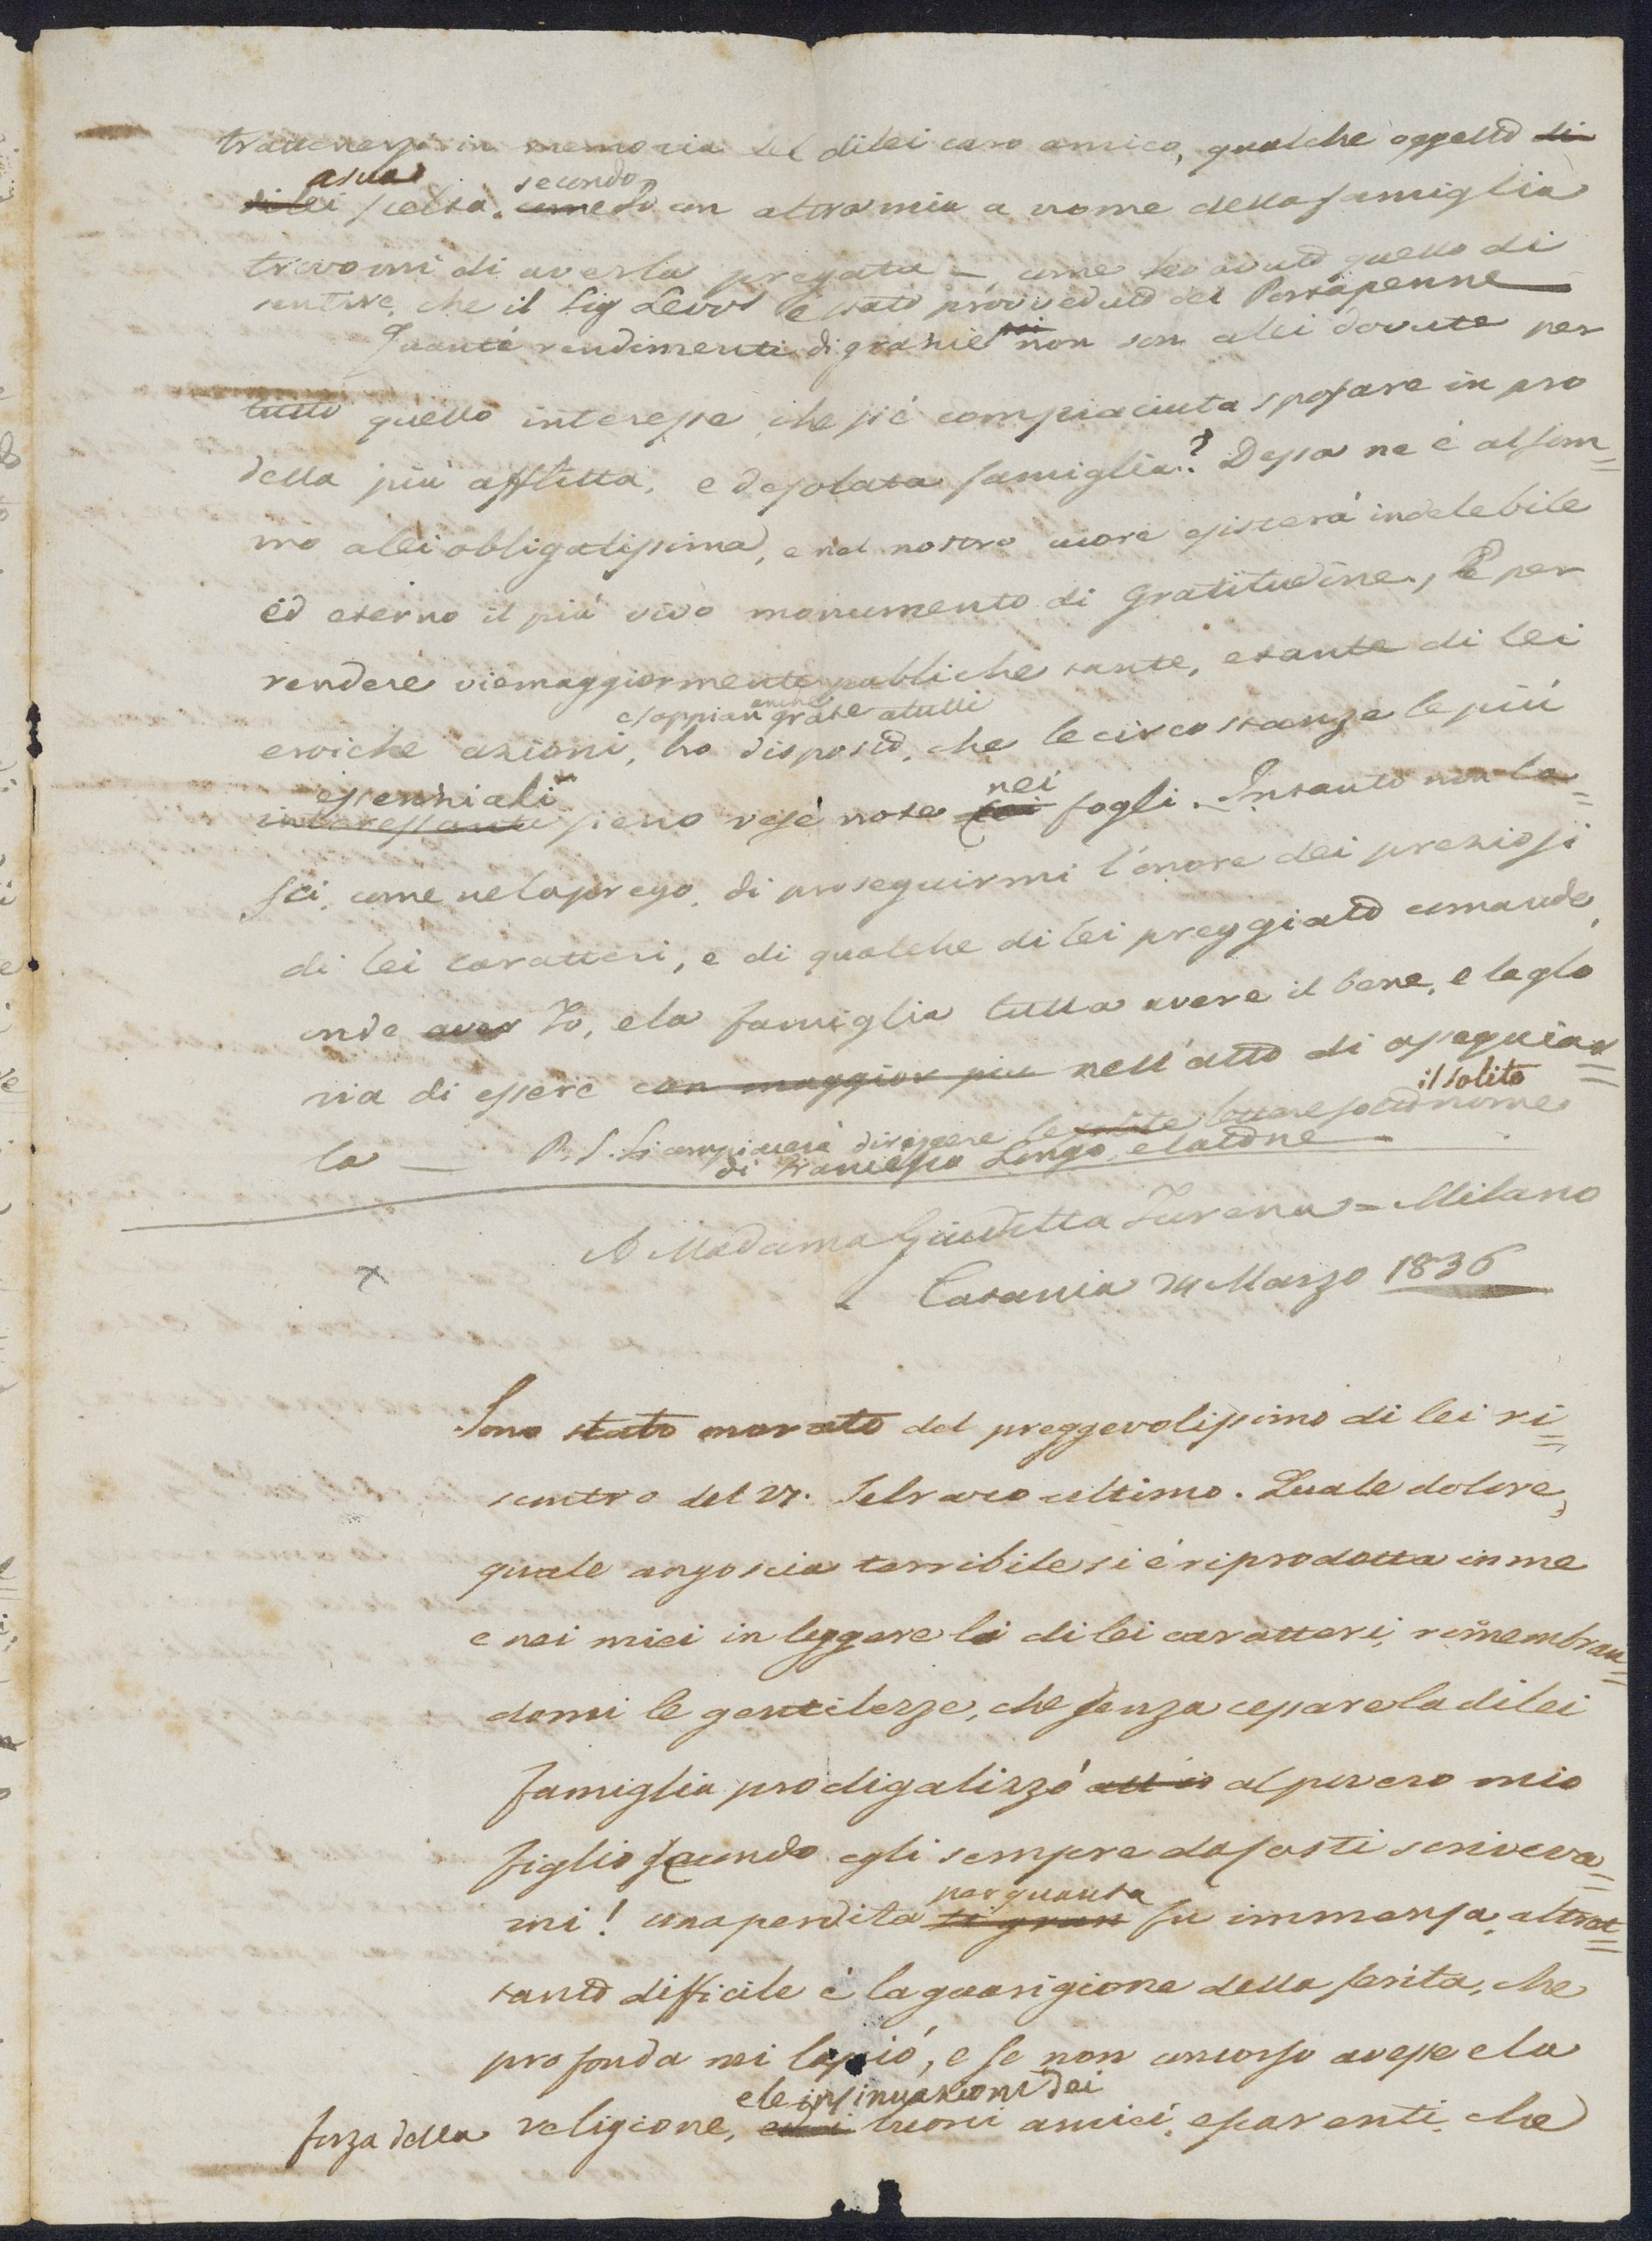 trattenersi in memoria del di lei caro amico, qualche oggetto di
a sua secondo
di lei scelta. come Io con altra mia a nome della famiglia
trovomi di averla pregata — come ho avuto quello di
sentire, che il Sig Levis è stato provveduto del Portapenne
Quanti rendimenti di grazie poi non son a lei dovute per
tutto quello interesse che si è compiaciuta spossare in pro
della più afflitta, e desolata famiglia? Dessa ne è al som=
mo a lei obligatissima, e nel nostro cuore esisterà indelebile
ed eterno il più vivo monumento di gratitudine, E per
rendere viemaggiormente publiche tante, e tante di lei
e sappian anche grate a tutti
eroiche azioni, ho disposto, che le circostanze le più
essenziali nei
interessanti sieno rese note coi fogli. Intanto non la=
sci, come ne la prego, di proseguirmi l'onore dei preziosi
di lei caratteri, e di qualche di lei preggiato comando,
onde aver Io, e la famiglia tutta avere il bene, e la glo
ria di essere con maggior piu nell'atto di ossequiar=
il solito
la — P. S. Si compiacerà diriggere le solite lettere sotto nome
di Francesco Longo, e Latone
A Madama Giuditta Turena = Milano
x Catania 24 Marzo 1836
Sono stato onorato del preggevolissimo di lei ri=
scontro del 27. Febraro ultimo. Quale dolore,
quale angoscia terribile si è riprodotta in me
e nei miei in leggere li di lei caratteri, rimembran=
domi le gentilezze, che senza cessare la di lei
famiglia prodigalizzò all io al povero mio
figlio secondo egli sempre da costì scriveva=
per quanta
mi! una perdita sì gran fu immensa, altret=
tanto difficile è la guarigione della ferita, che
profonda nei lasciò, e se non concorso avesse e la
e le insinuazioni dei
forza della religione, e dei buoni amici, e parenti, che